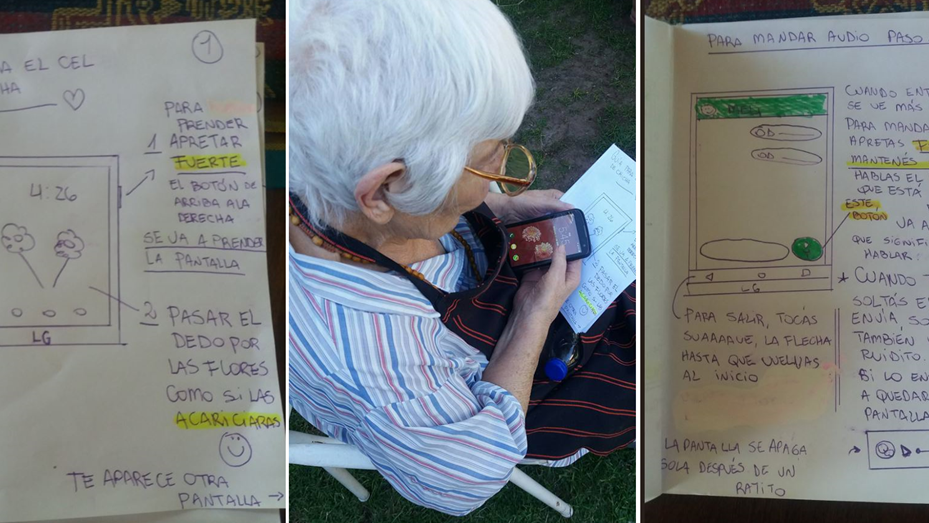 1
A EL CEL
HA
PARA
PRENDER
1 APRETAR
FUERTE
EL BOTÓN DE
ARRIBA A LA
DERECHA
SE VA A PRENDER
LA PANTALLA
4:26
LG
2 PASAR EL
DEDO POR
LAS FLORES
COMO SI LAS
ACARICIARAS
TE APARECE OTRA
PANTALLA →
PARA MANDAR AUDIO PASO
CUANDO ENT
SE VE MÁS
PARA MANDA
APRETAS
MANTENÉS
HABLAS EL
QUE ESTÁ
ESTE
BOTÓN
VA A
QUE SIGNIFI
HABLAR
LG
* CUANDO T
SOLTÁS E
ENVIA, SO
TAMBIÉN
RUIDITO.
BI LO EN
A QUEDAR
PANTALLA
PARA SALIR, TOCÁS
SUAAAAUE, LA FLECHA
HASTA QUE VUELVAS
AL INICIO
LA PANTALLA SE APAGA
SOLA DESPUÉS DE UN
RATITO